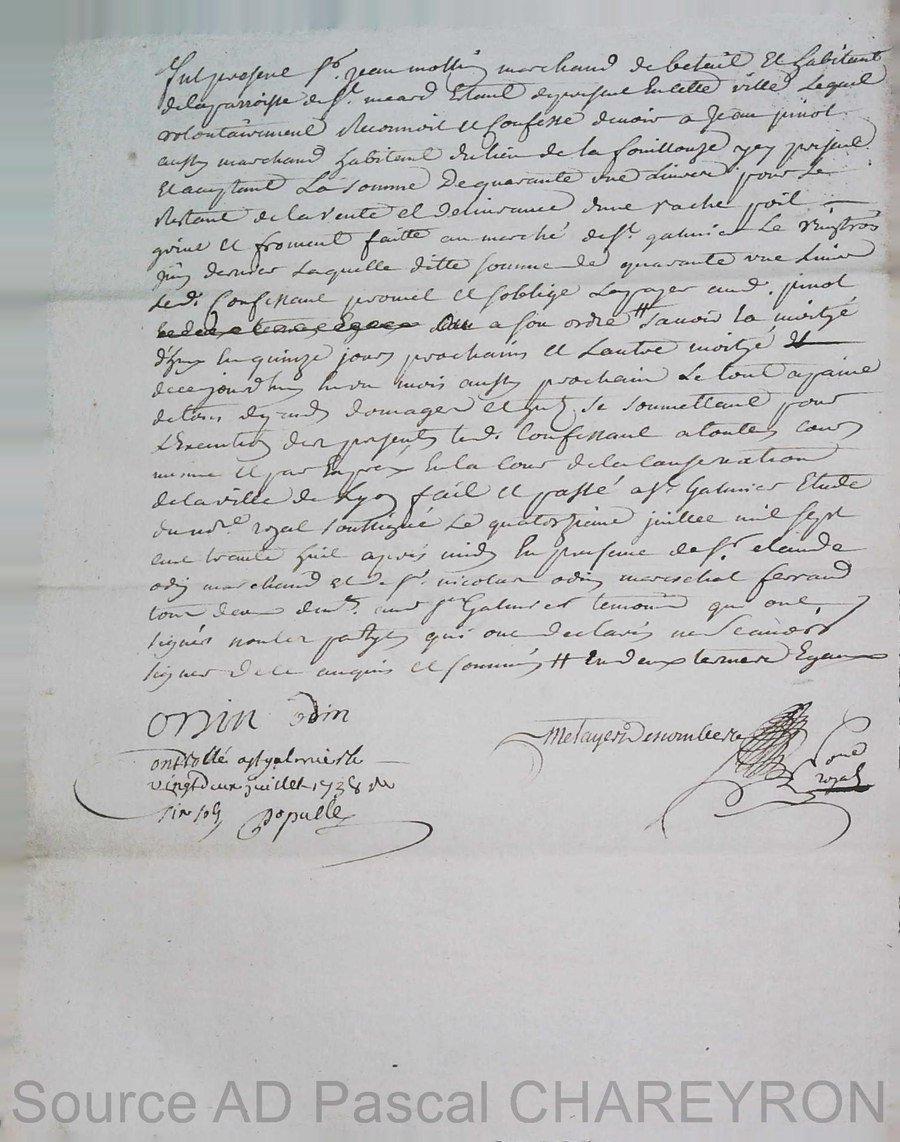 fut present Sr. jean mollin marchand de betail Et habitant
de la parroisse de St. meard Estant de present En cette ville Lequel
volontairement Reconnoit et Confesse devoir a Jean pinot
aussy marchand habitant du lieu de la fouillouze ycy present
Et acceptant La somme De quarante une Livre pour Le
Restant de la vente et delivrance d'une vache poil
et froment faitte au marché de St. galmier Le vingt trois
juin dernier Laquelle ditte somme de quarante une Livre
Led. Confessant promet et s'oblige La payer aud. pinot
ou a son ordre # savoir la moitié
d'huy En quinze jours prochains et L'autre moitié
de ce jourd'huy En un mois aussy prochain Le tout a paine
de tous despends domages et se soumettant pour
L'execution des presentes led. Confessant a toutes cours
mesme et par Expres En la Cour de la Conservation
de la ville de Lyon fait et passé a St. Galmier Etude
du nore. royal soussigné Le quatorzieme juillet mil sept
cent trente huit apres midy En presence de Sr. claude
odin marchand et de Sr. nicolas odin mareschal ferrand
tous deux dud. St. Galmier temoins qui ont
signés non les partyes qui ont declarés ne scavoir
signer de ce enquis et sommés # En deux termes Egaux
odin odin
Metayer Desnombere
noe
royal
ontrollé a st galmier le
vingt deux juillet 1738 Re
six sols populle
Source AD Pascal CHAREYRON